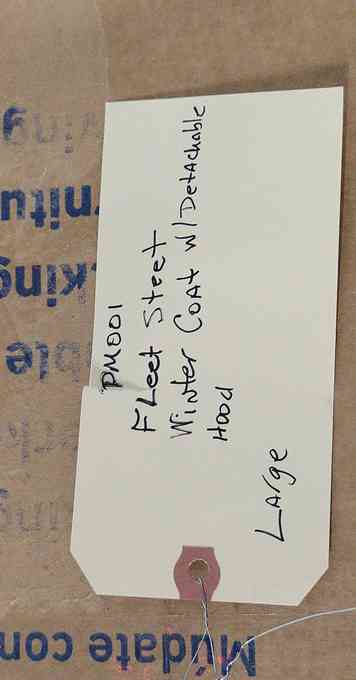 PM001
FLeet Street
Winter Coat w/Detachable
Hood
Large
king
rnitu
cking
ble
king
Múdate con